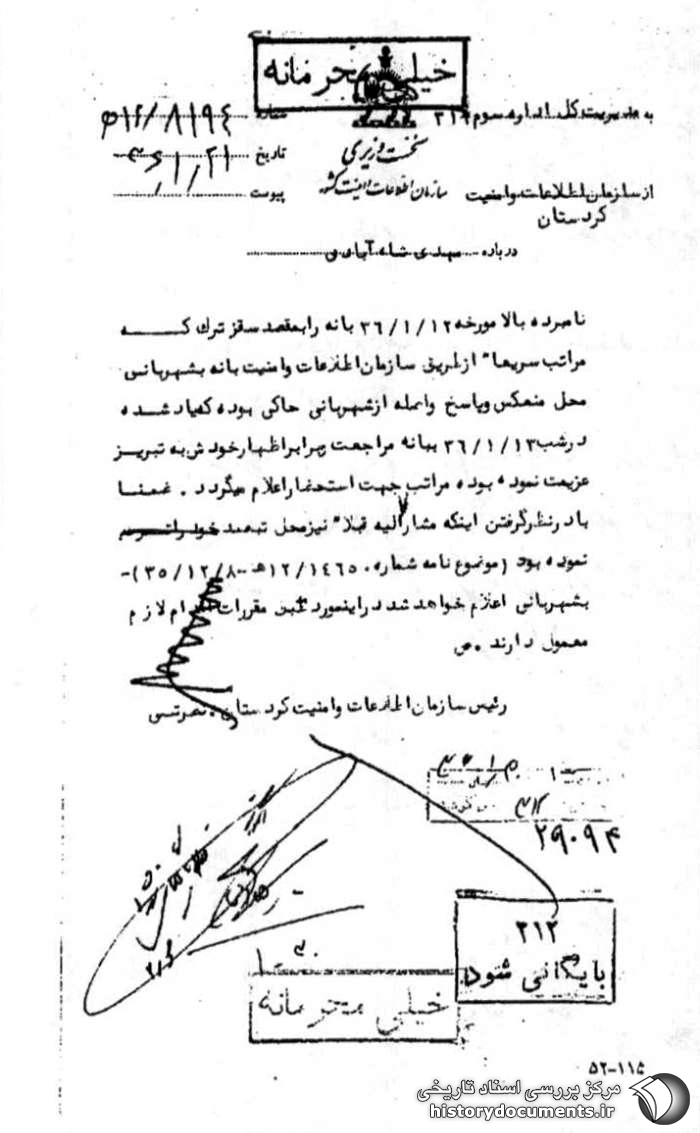 خیلی محرمانه
به مدیریت کل اداره سوم ۳۱۲
شماره ۸۱۹۴/۱۶ه
نخست وزیری
تاریخ ۳۶/۱/۲۱
سازمان اطلاعات و امنیت کشور
پیوست
از سازمان اطلاعات و امنیت
کردستان
درباره مهدی شاه آبادی
نامبرده بالا مورخه ۳۶/۱/۱۲ بانه را بمقصد سقز ترک که
مراتب سریعا" از طریق سازمان اطلاعات و امنیت بانه بشهربانی
محل منعکس و پاسخ واصله از شهربانی حاکی بوده که یاد شده
در شب ۳۶/۱/۱۳ ببانه مراجعت و برابر اظهار خودش به تبریز
عزیمت نموده بوده مراتب جهت استحضار اعلام میگردد . ضمنا
با در نظر گرفتن اینکه مشارالیه قبلا" نیز محل تبعید خود را ترک
نموده بود (موضوع نامه شماره ۱۲/۱۴۶۵۰ه -۳۵/۱۲/۸)-
بشهربانی اعلام خواهد شد در اینمورد طبق مقررات اقدام لازم
معمول دارند .ص
رئیس سازمان اطلاعات و امنیت کردستان .
۲۹۰۹۴
۳۱۲
بایگانی شود
خیلی محرمانه
۵۲-۱۱۵
مرکز بررسی اسناد تاریخی
historydocuments.ir